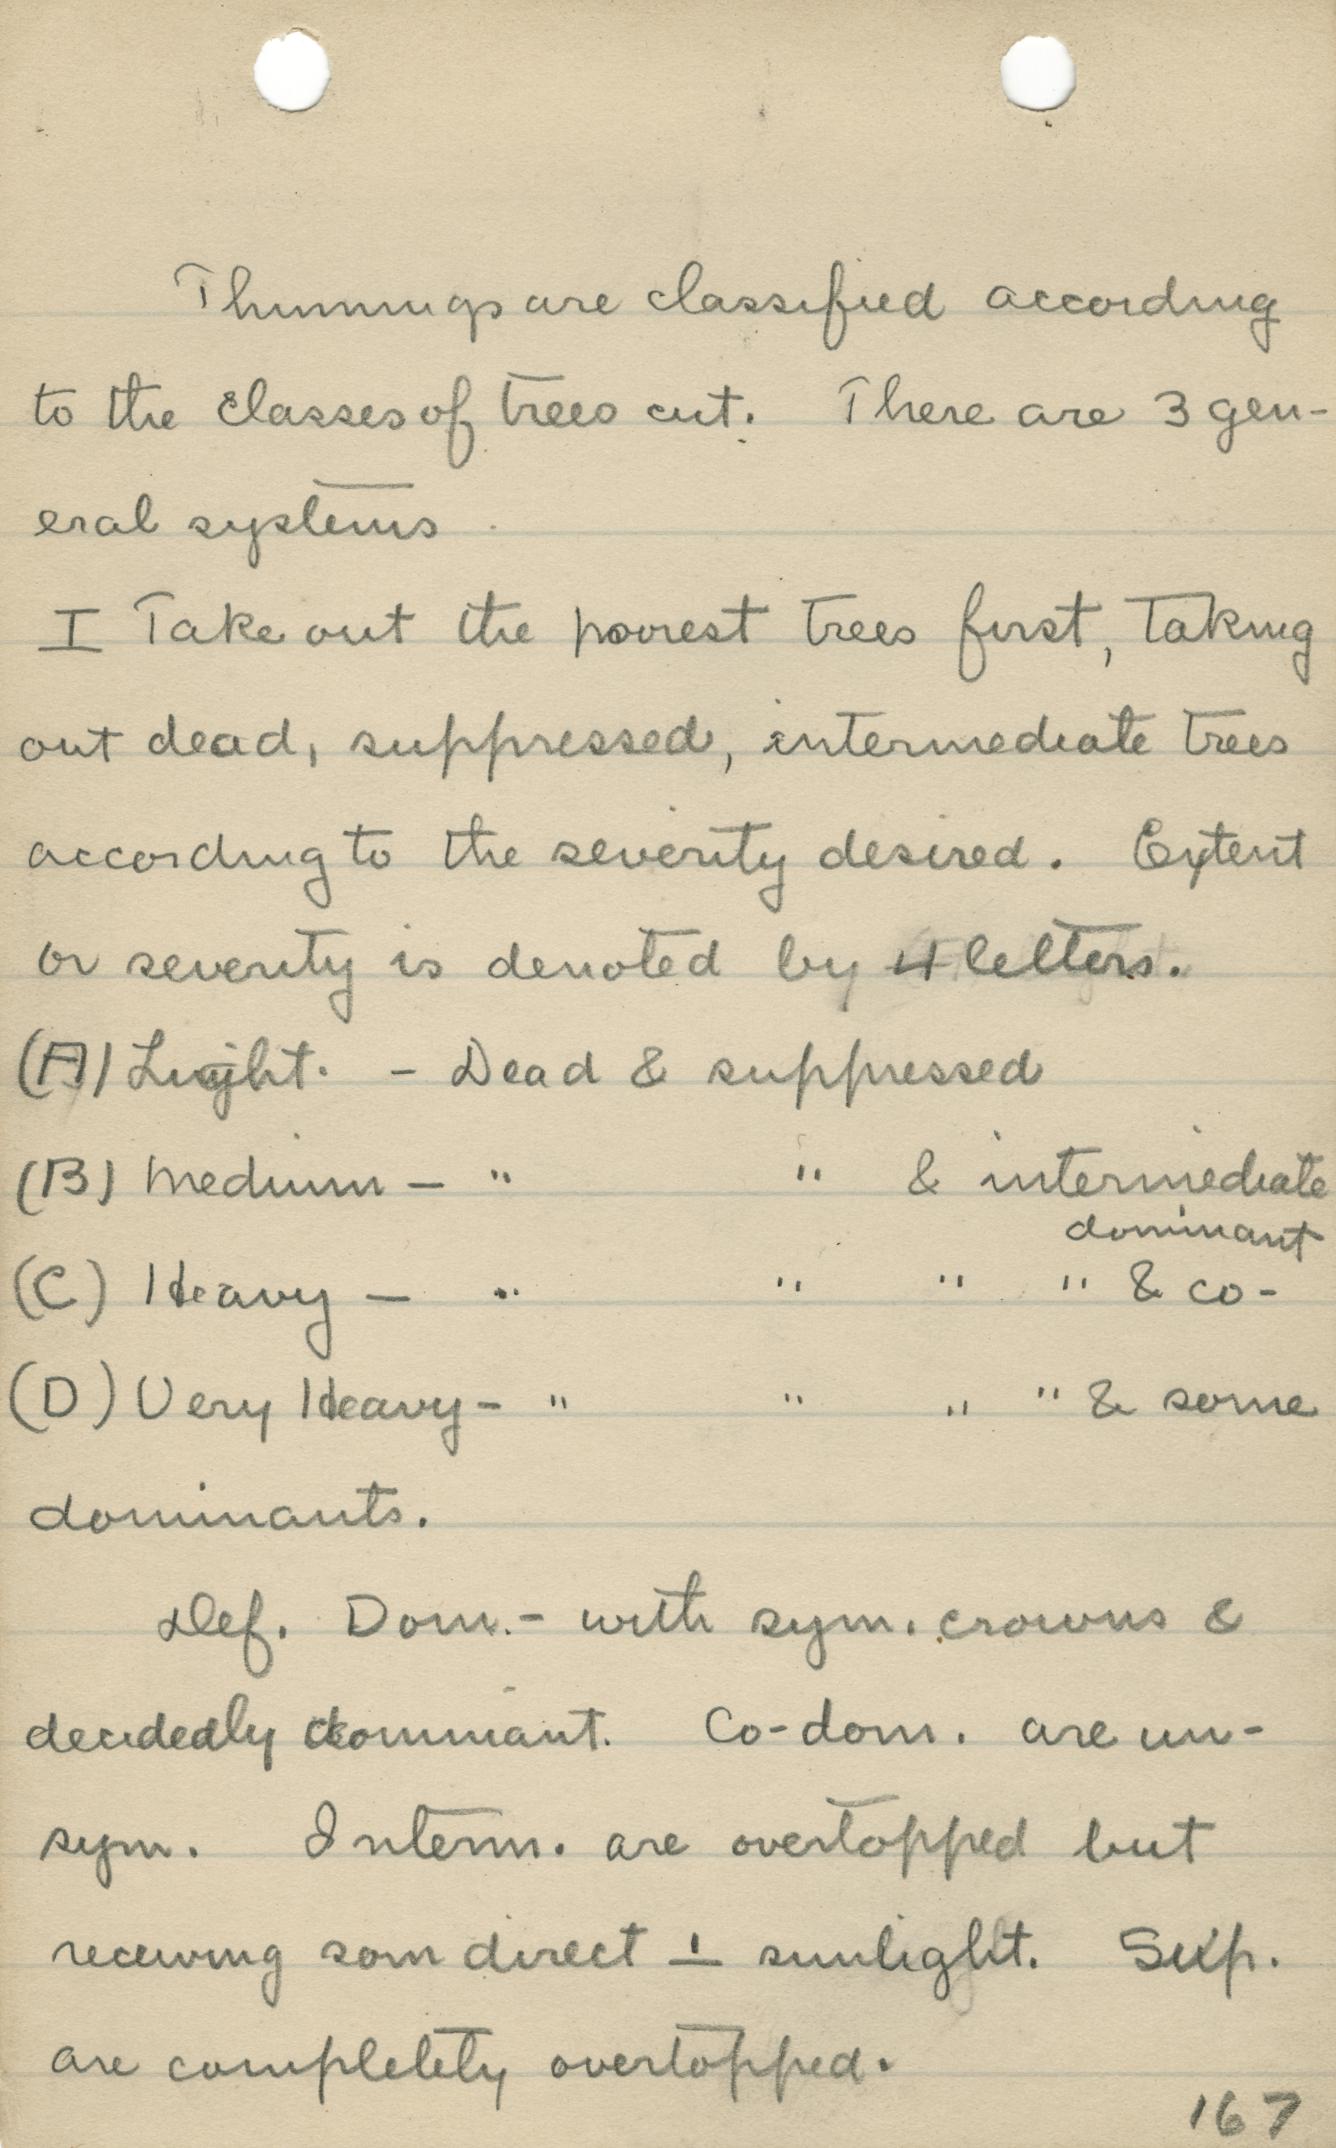 Thinnings are classified according
to the classes of trees cut. There are 3 gen-
eral systems
I Take out the poorest trees first, taking
out dead, suppressed, intermediate trees
according to the severity desired. Extent
or severity is denoted by 4 letters.
(A) Light. - Dead & suppressed
(B) Medium - " " & intermediate
dominant
(C) Heavy - " " " " & co-
(D) Very Heavy - " " " " & some
dominants.
Def. Dom. - with sym. crowns &
decidedly dominant. Co-dom. are un-
sym. Interm. are overtopped but
receiving som direct ⊥ sunlight. Sup.
are completely overtopped.
167